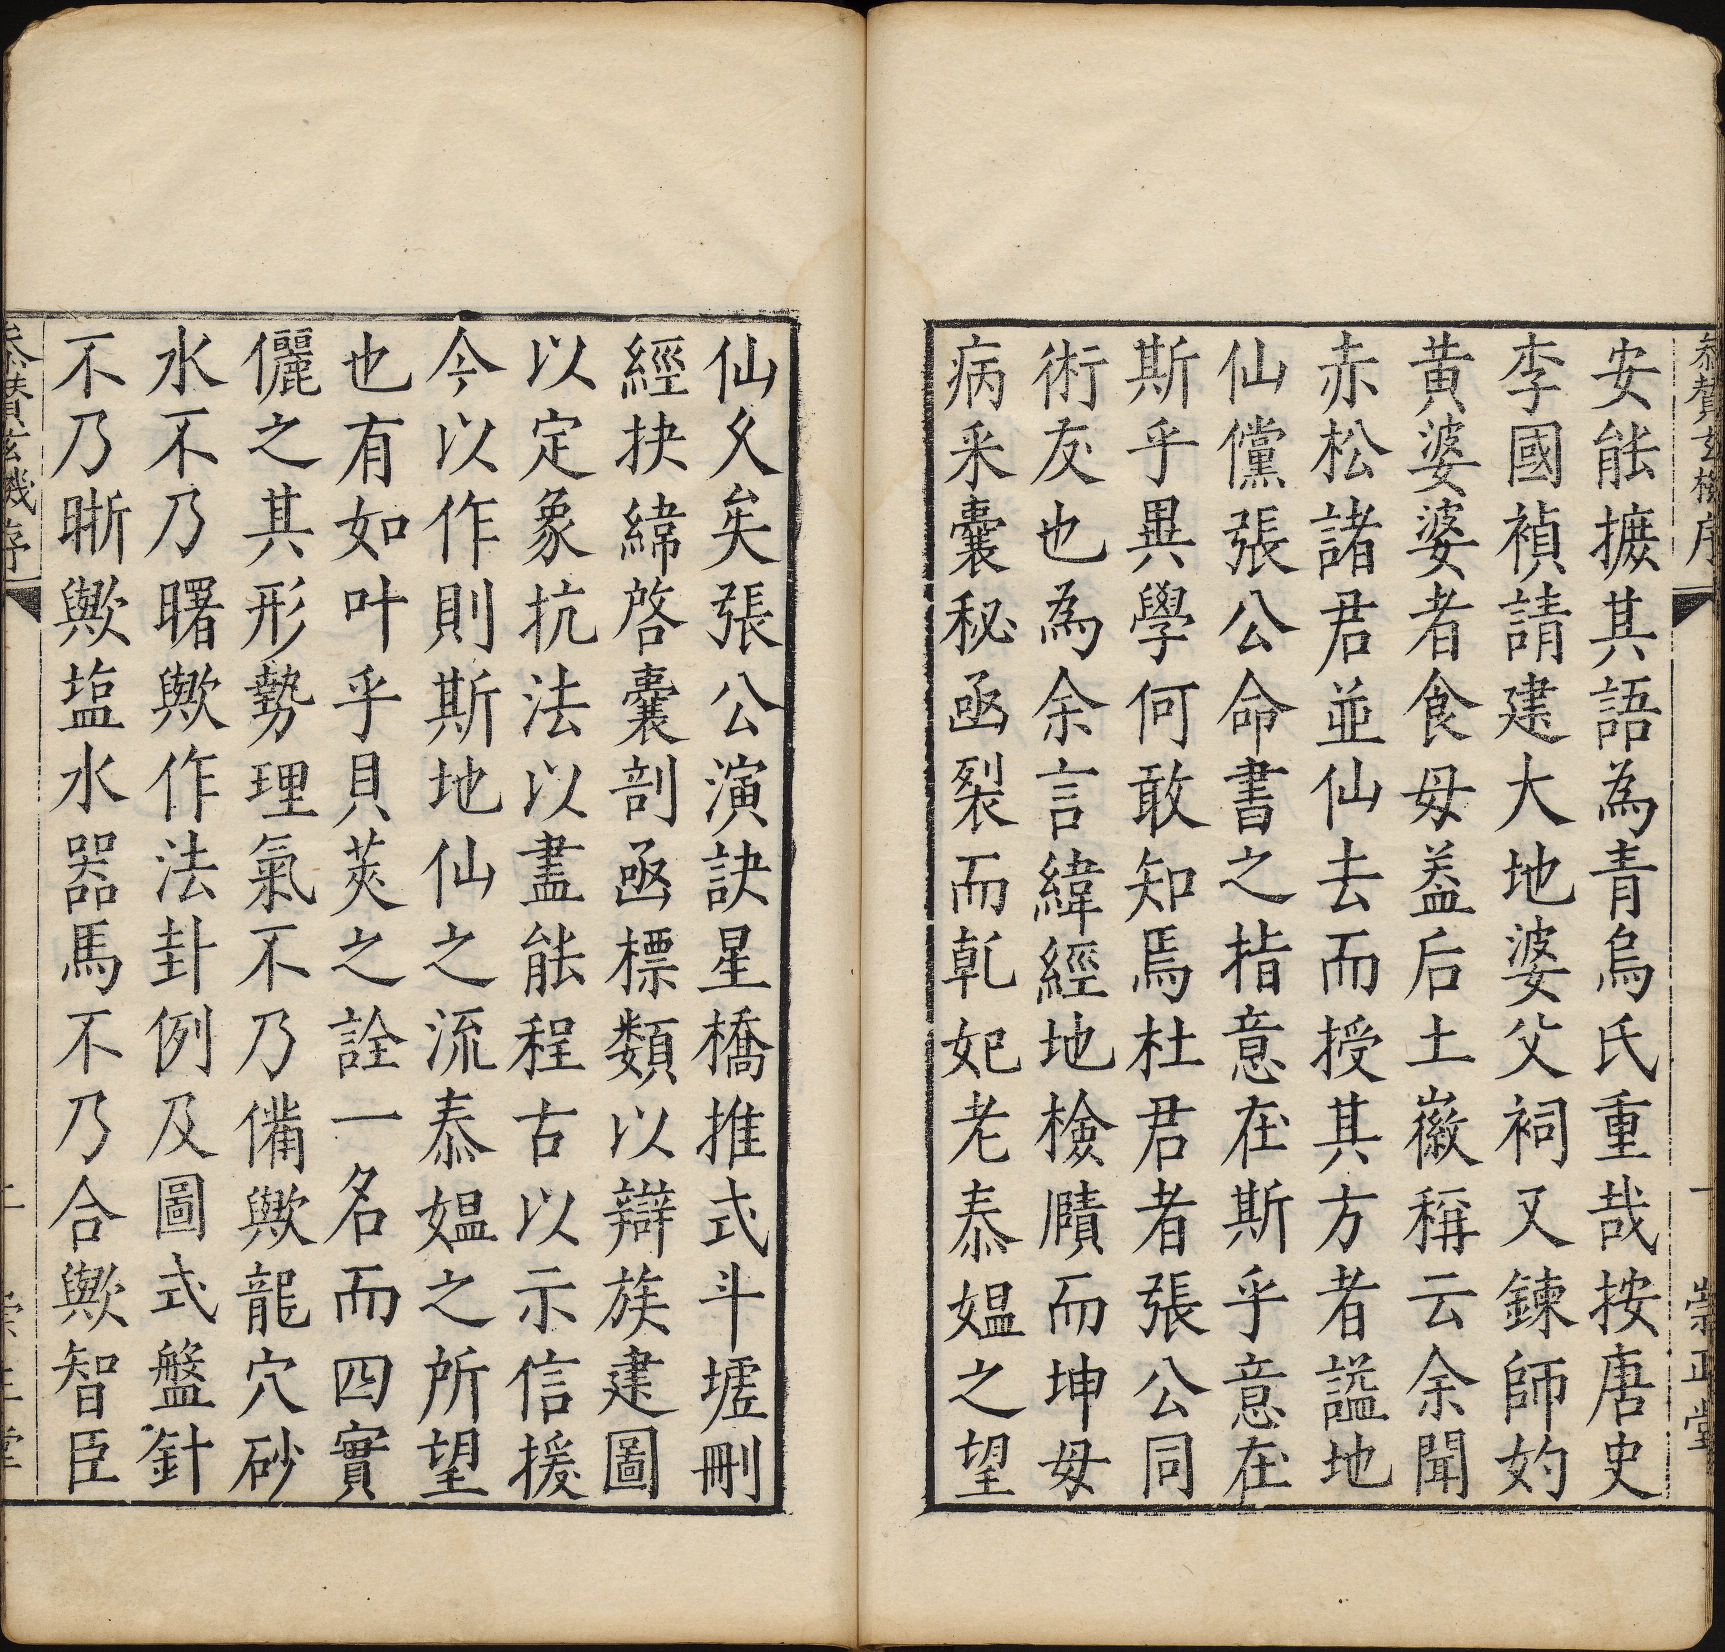 參贊玄機序
一
崇正堂
安能摭其語為青烏氏重哉按唐史
李國禎請建大地婆父祠又鍊師妁
黃婆婆者食毋葢后土徽稱云余聞
赤松諸君並仙去而授其方者謚地
仙儻張公命書之指意在斯乎意在
斯乎異學何敢知焉杜君者張公同
術友也為余言緯經地檢賾而坤毋
病釆囊秘函裂而乹妃老泰媼之望
仙久矣張公演訣星橋推式斗墟刪
經抉緯啓囊剖函標類以辯族建圖
以定象抗法以盡能程古以示信援
今以作則斯地仙之流泰媼之所望
也有如叶乎貝莢之詮一名而四實
儷之其形勢理氣不乃備歟龍穴砂
水不乃曙歟作法卦例及圖式盤針
不乃晰歟塩水器馬不乃合歟智臣
參贊玄機序
二
崇正堂